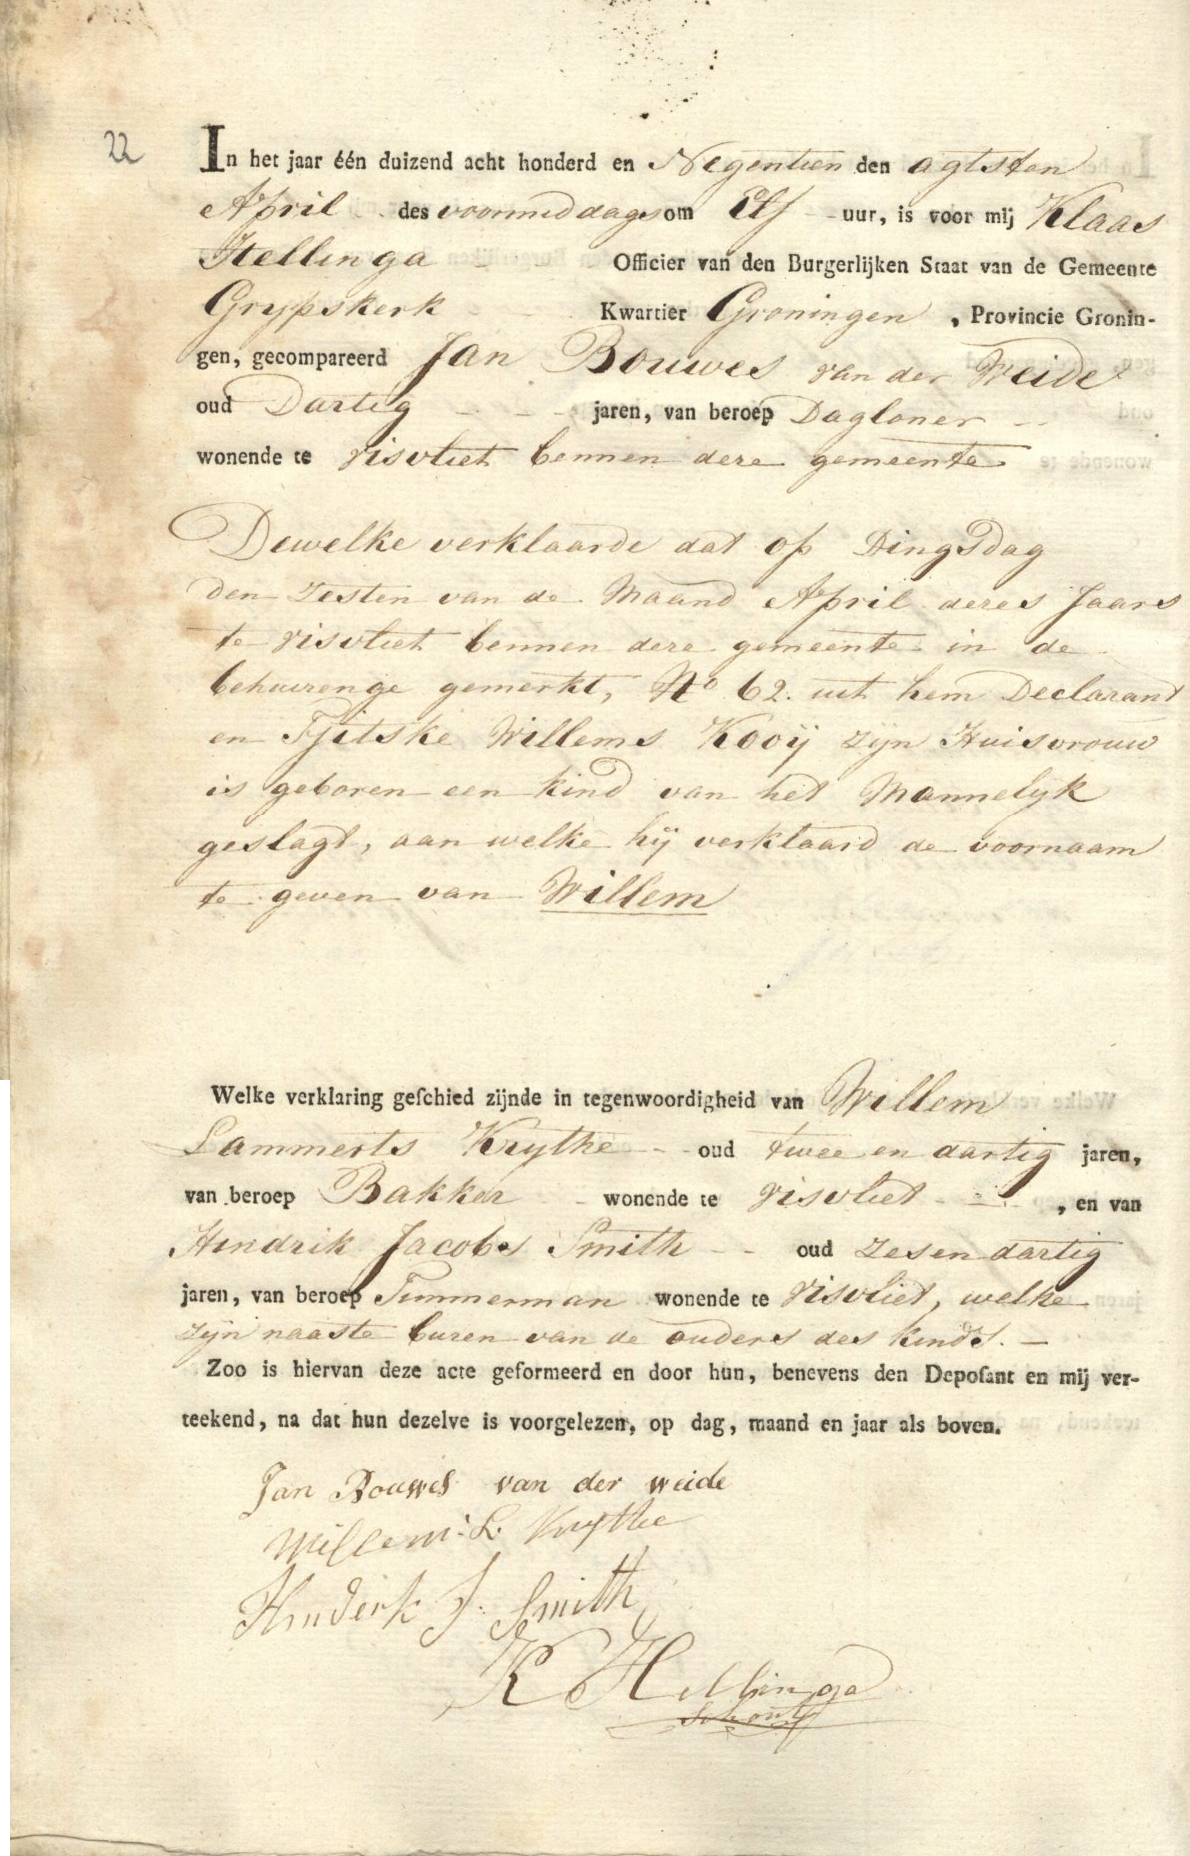 22
In het jaar één duizend acht honderd en Negentien den agtsten
April des voormiddags om Elf uur, is voor mij Klaas
Hellinga Officier van den Burgerlijken Staat van de Gemeente
Grypskerk Kwartier Groningen, Provincie Gronin-
gen, gecompareerd Jan Bouwes van der Weide
oud Dartig jaren, van beroep Dagloner
wonende te Visvliet bennen dere gemeente
Dewelke verklaarde dat op Dingsdag
den Zesten van de Maand April deres Jaars
te Visvliet bennen dere gemeente in de
behuirenge gemerkt, No 62. uit hem Declarant
en Tjitske Willems Kooij zyn Huisvrouw
is geboren een kind van het Mannelyk
geslagt, aan welke hij verklaard de voornaam
te geven van Willem
Welke verklaring geschied zijnde in tegenwoordigheid van Willem
Lammerts Krythe oud twee en dartig jaren,
van beroep Bakker wonende te Visvliet, en van
Hindrik Jacobs Smith oud zesendartig
jaren, van beroep Timmerman wonende te Visvliet, welke
zyn naaste buren van de ouders des kinds. —
Zoo is hiervan deze acte geformeerd en door hun, benevens den Deposant en mij ver-
teekend, na dat hun dezelve is voorgelezen, op dag, maand en jaar als boven.
Jan Bouwes van der weide
Willem L. Krythe
Hinderk J. Smith
K Hellinga
Schout